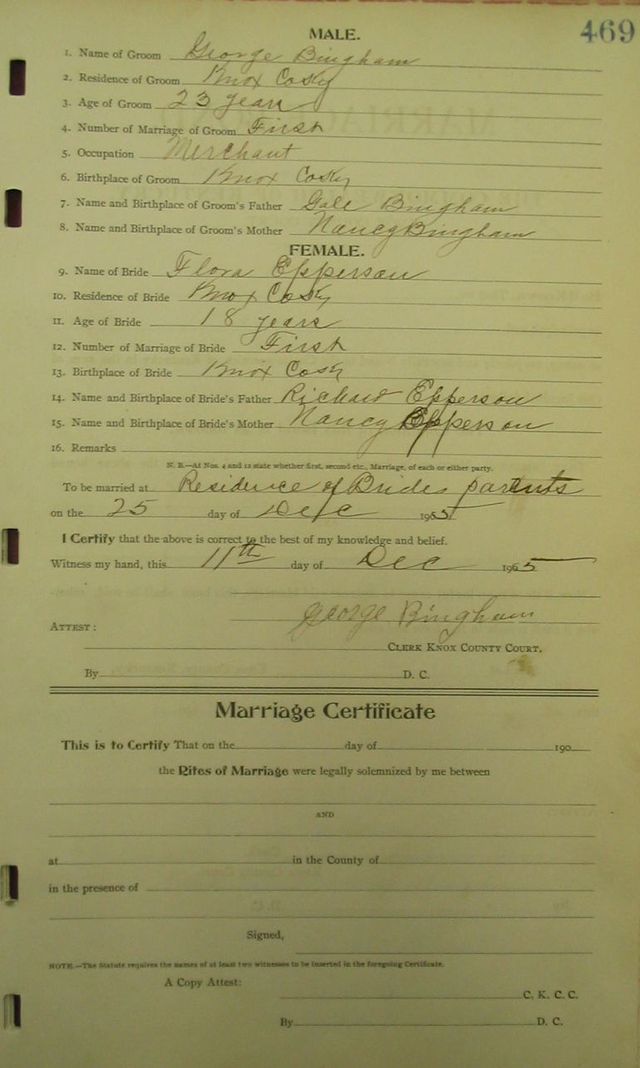 469
MALE.
1. Name of Groom George Bingham
2. Residence of Groom Knox Co Ky
3. Age of Groom 23 years
4. Number of Marriage of Groom First
5. Occupation Merchant
6. Birthplace of Groom Knox Co Ky
7. Name and Birthplace of Groom's Father Gale Bingham
8. Name and Birthplace of Groom's Mother Nancy Bingham
FEMALE.
9. Name of Bride Flora Epperson
10. Residence of Bride Knox Co Ky
11. Age of Bride 18 years
12. Number of Marriage of Bride First
13. Birthplace of Bride Knox Co Ky
14. Name and Birthplace of Bride's Father Richard Epperson
15. Name and Birthplace of Bride's Mother Nancy Epperson
16. Remarks
N. B.—At Nos. 4 and 12 state whether first, second etc., Marriage, of each or either party.
To be married at Residence of Brides parents
on the 25 day of Dec 1905
I Certify that the above is correct to the best of my knowledge and belief.
Witness my hand, this 11th day of Dec 1905
George Bingham
ATTEST:
CLERK KNOX COUNTY COURT.
By D. C.
Marriage Certificate
This is to Certify That on the day of 190
the Rites of Marriage were legally solemnized by me between
AND
at in the County of
in the presence of
Signed,
NOTE.—The Statute requires the names of at least two witnesses to be inserted in the foregoing Certificate.
A Copy Attest:
C. K. C. C.
By D. C.